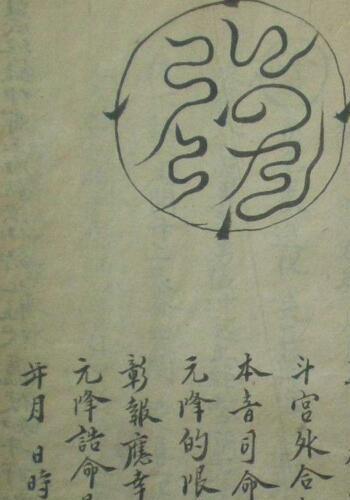 斗宮外合
本音司命
元降的限
彰報應幸
元降誥命
年月日時